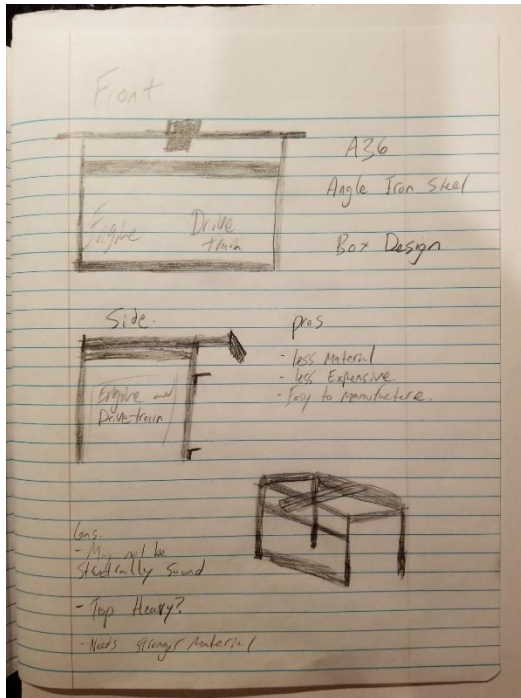 Front
A36
Angle Iron Steel
Engine
Drive
train
Box Design
Side.
Engine and
Drive-train
pros
- less Material
- less Expensive.
- Easy to Manufacture.
Cons.
- May not be
structrally Sound
- Top Heavy?
- Needs stronger Material